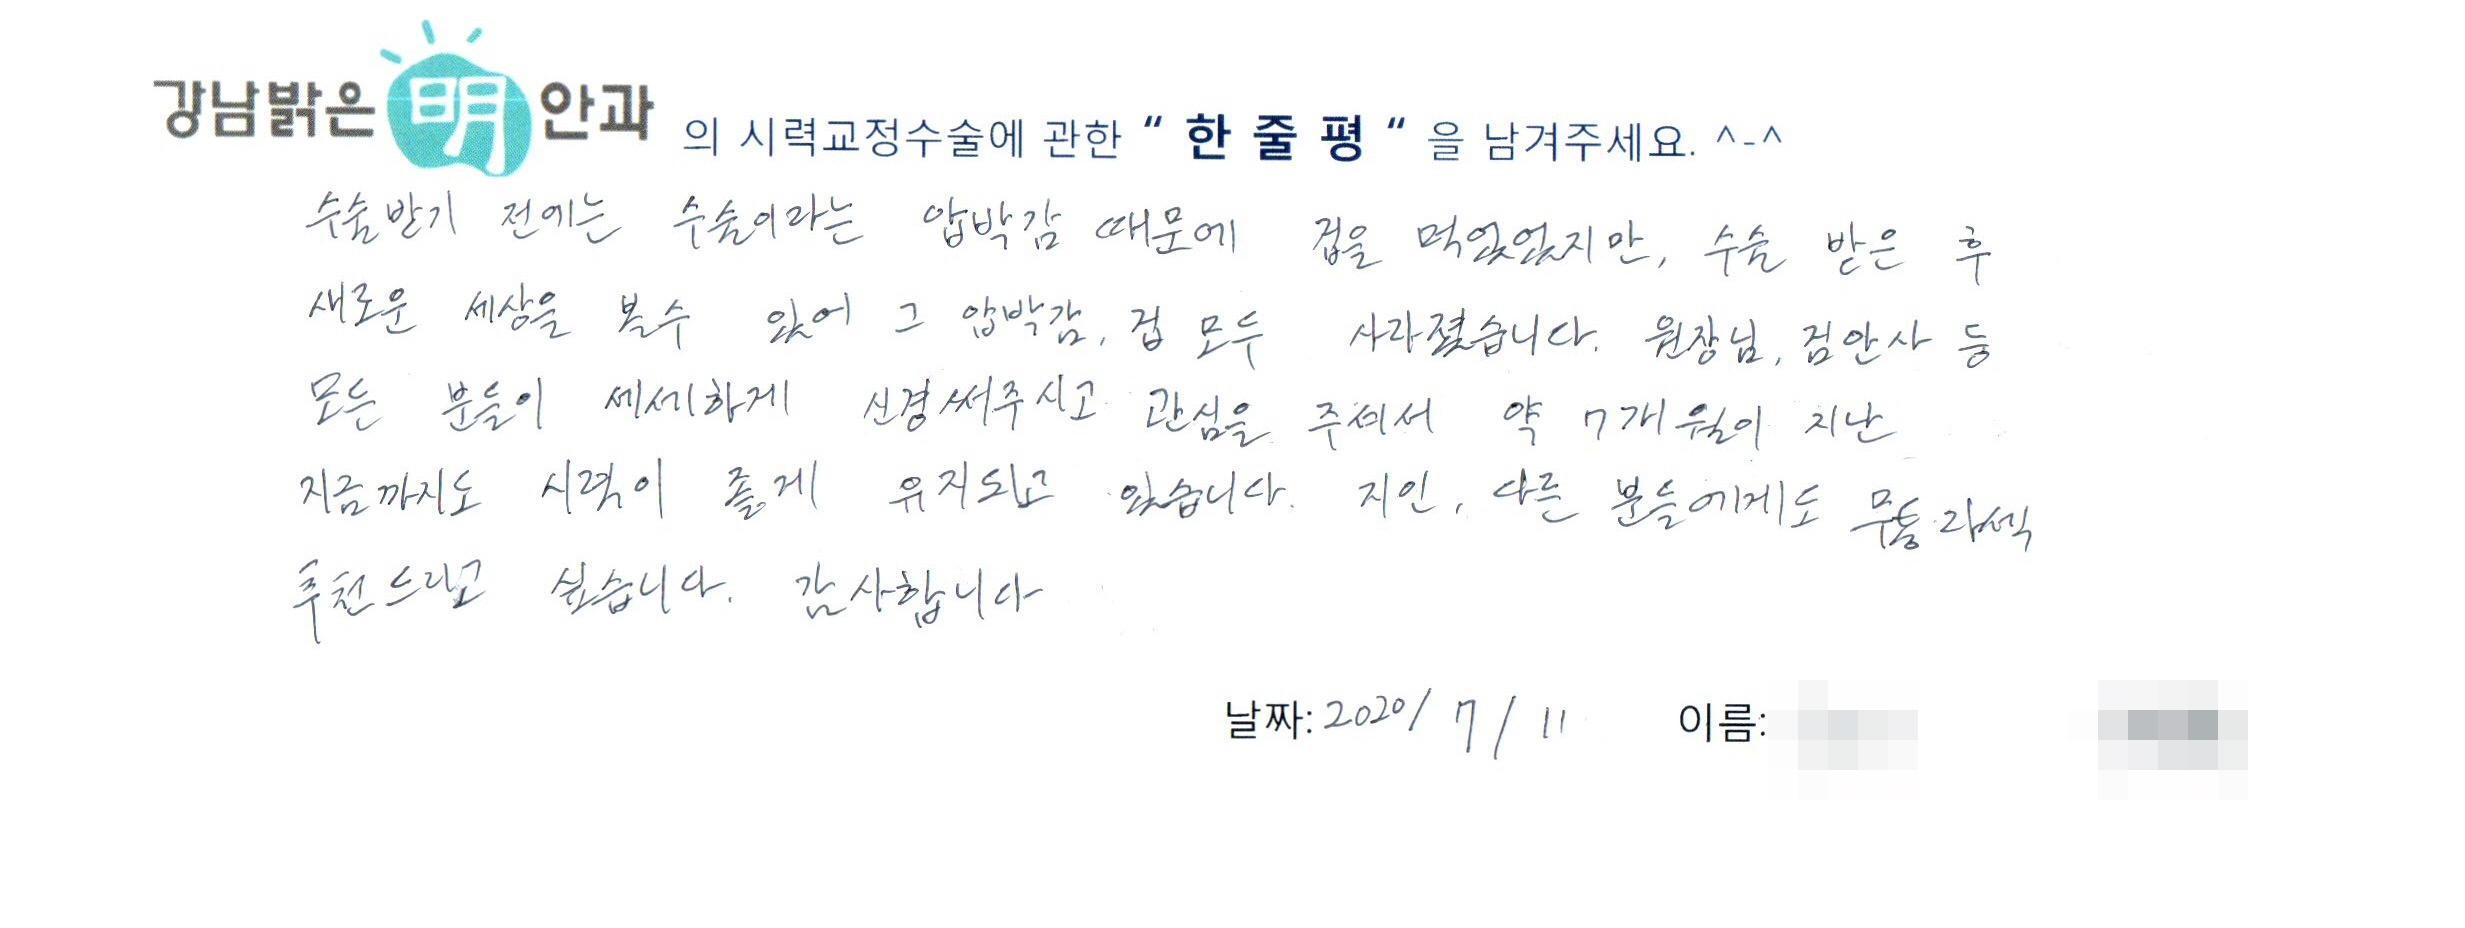 강남밝은 明 안과 의 시력교정수술에 관한 “ 한 줄 평 “ 을 남겨주세요. ^-^
수술받기 전에는 수술이라는 압박감 때문에 겁을 먹었었지만, 수술 받은 후
새로운 세상을 볼수 있어 그 압박감, 겁 모두 사라졌습니다. 원장님, 검안사 등
모든 분들이 세세하게 신경써주시고 관심을 주셔서 약 7개월이 지난
지금까지도 시력이 좋게 유지되고 있습니다. 지인, 다른 분들에게도 무통라섹
추천드리고 싶습니다. 감사합니다
날짜: 2020/ 7 / 11 이름: